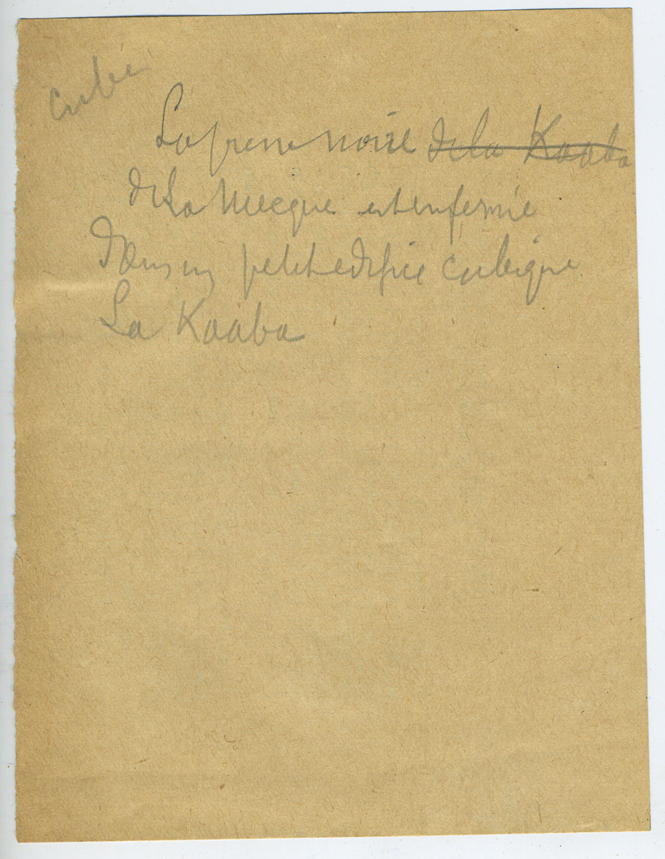 cube
La pierre noire ~~de la Kaaba~~
de La Mecque est enfermé
dans un petit edifice cubique
La Kaaba